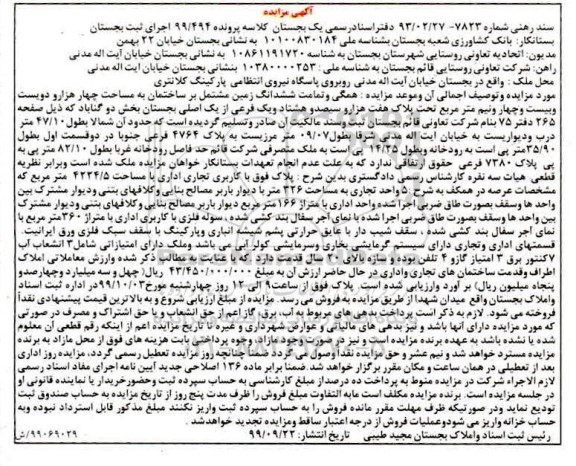 آگهی مزایده
سند رهنی شماره ۷۸۲۳- ۹۳/۰۲/۲۷ دفتر اسناد رسمی یک بجستان کلاسه پرونده ۹۹/۴۹۴ اجرای ثبت بجستان
بستانکار: بانک کشاورزی شعبه بجستان بشناسه ملی ۱۰۱۰۰۸۳۰۱۸۴ به نشانی بجستان خیابان ۲۲ بهمن
مدیون: اتحادیه تعاونی روستایی شهرستان بجستان به شناسه ۱۰۸۶۱۱۹۱۷۲۰ به نشانی بجستان خیابان آیت اله مدنی
راهن: شرکت تعاونی روستایی قائم بجستان به شناسه ملی: ۱۰۳۸۰۰۰۰۲۵۳ بنشانی بجستان خیابان آیت اله مدنی
محل ملک: واقع در بجستان خیابان آیت اله مدنی روبروی پاسگاه نیروی انتظامی پارکینگ کلانتری
مورد مزایده و توصیف اجمالی آن و موعد مزایده: همگی و تمامت ششدانگ زمین مشتمل بر ساختمان به مساحت چهار هزار و دویست
و بیست و چهار و نیم متر مربع تحت پلاک هفت هزار و سیصد و هشتاد و یک فرعی از یک اصلی بجستان بخش دو گناباد که ذیل صفحه
۲۶۵ دفتر ۷۵ بنام شرکت تعاونی قائم بجستان ثبت و سند مالکیت آن صادر و تسلیم گردیده است که حدود آن شمالا بطول ۴۷/۱۰ متر
درب و دیواریست به خیابان آیت اله مدنی شرقا بطول ۹/۰۷ متر مرزیست به پلاک ۴۷۶۴ فرعی جنوبا در دو قسمت اول بطول
۳۵/۹۰ متر پی است به رودخانه و بطول ۱۴/۳۵ پی است به ملک متصرفی شرکت قائم حد فاصل رودخانه غربا بطول ۸۲/۱۰ متر پی به
پی پلاک ۷۳۸۰ فرعی حقوق ارتفاقی ندارد که به علت عدم انجام تعهدات بستانکار خواهان مزایده ملک شده است و برابر نظریه
قطعی هیات سه نفره کارشناس رسمی دادگستری بدین شرح: پلاک فوق با کاربری تجاری اداری با مساحت ۴۲۲۴/۵ متر مربع که
مشخصات عرصه در همکف به شرح: ۵ واحد تجاری به مساحت ۲۲۶ متر با دیوار باربر مصالح بنایی و کلافهای بتنی و دیوار مشترک بین
واحد ها و سقف بصورت طاق ضربی اجرا شده واحد اداری با متراژ ۱۶۶ متر مربع دیوار باربر مصالح بنایی و کلافهای بتنی و دیوار مشترک
بین واحد ها و سقف بصورت طاق ضربی اجرا شده با نمای آجر سفال بند کشی شده، سوله فلزی با کاربری اداری با متراژ ۳۶۰ متر مربع با
نمای آجر سفال بند کشی شده، سقف شیب دار با عایق حرارتی پشم شیشه انباری و پارکینگ با سقف سبک فلزی ورق ایرانیت.
قسمتهای اداری و تجاری دارای سیستم گرمایشی بخاری و سرمایشی کولر آبی می باشد و ملک دارای امتیازاتی شامل ۳ انشعاب آب
۷ کنتور برق ۳ امتیاز گازو ۴ تلفن بوده و سازه بالای ۲۰ سال قدمت دارد که با عنایت به مطالب ذکر شده و ارزش معاملاتی املاک
اطراف و قدمت ساختمان های تجاری و اداری در حال حاضر ارزش آن به مبلغ ۴۳/۴۵۰/۰۰۰/۰۰۰ ریال( چهل و سه میلیارد و چهارصد و
پنجاه میلیون ریال) بر آورد و ارزیابی شده است. پلاک فوق از ساعت ۹ الی ۱۲ روز چهارشنبه مورخ ۹۹/۱۰/۰۳ در اداره ثبت اسناد
و املاک بجستان واقع میدان شهدا از طریق مزایده به فروش می رسد. مزایده از مبلغ ارزیابی شروع و به بالاترین قیمت پیشنهادی نقداً
فروخته می شود. لازم به ذکر است پرداخت بدهی های مربوط به آب، برق، گاز اعم از حق انشعاب و یا حق اشتراک و مصرف در صورتی
که مورد مزایده دارای آنها باشد و نیز بدهی های مالیاتی و عوارض شهرداری و غیره تا تاریخ مزایده اعم از اینکه رقم قطعی آن معلوم
شده یا نشده باشد به عهده برنده مزایده است و نیز در صورت وجود مازاد، وجوه پرداختی بابت هزینه های فوق از محل مازاد به برنده
مزایده مسترد خواهد شد و نیم عشر و حق مزایده نقداً وصول می گردد ضمنا چنانچه روز مزایده تعطیل رسمی گردد، مزایده روز اداری
بعد از تعطیلی در همان ساعت و مکان مقرر برگزار خواهد شد. ضمنا برابر ماده ۱۳۶ اصلاحی جدید آیین نامه اجرای مفاد اسناد رسمی
لازم الاجراء شرکت در مزایده منوط به پرداخت ده درصد از مبلغ کارشناسی به حساب سپرده ثبت و حضور خریدار یا نماینده قانونی او
در جلسه مزایده است. برنده مزایده مکلف است مابه التفاوت مبلغ فروش را ظرف مدت پنج روز از تاریخ مزایده به حساب صندوق ثبت
تودیع نماید و در صورتیکه ظرف مهلت مقرر مانده فروش را به حساب سپرده ثبت واریز نکنند مبلغ مذکور قابل استرداد نبوده و به
حساب خزانه واریز می شود و عملیات فروش از درجه اعتبار ساقط و مزایده تجدید خواهد شد.
رئیس ثبت اسناد و املاک بجستان مجید طیبی تاریخ انتشار: ۹۹/۰۹/۲۲ ۹۹/۰۶۹۰۲۹/ش